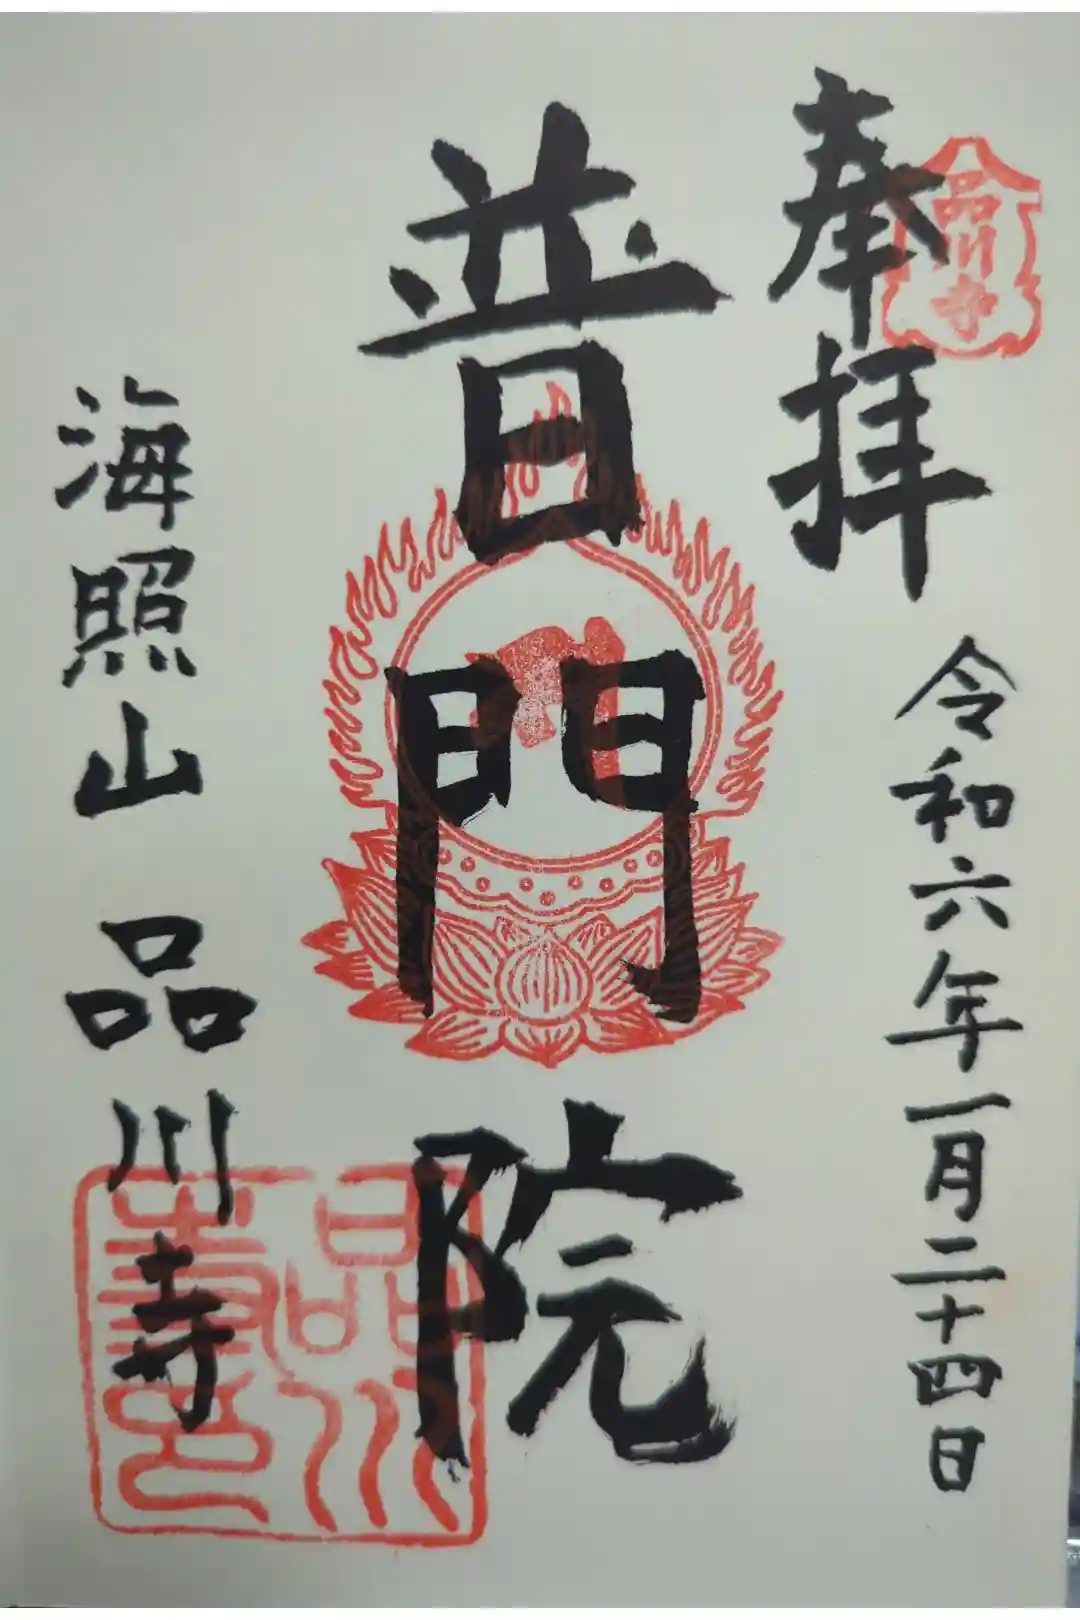 奉拝
令和六年一月二十四日
品川寺
普門院
海照山 品川寺